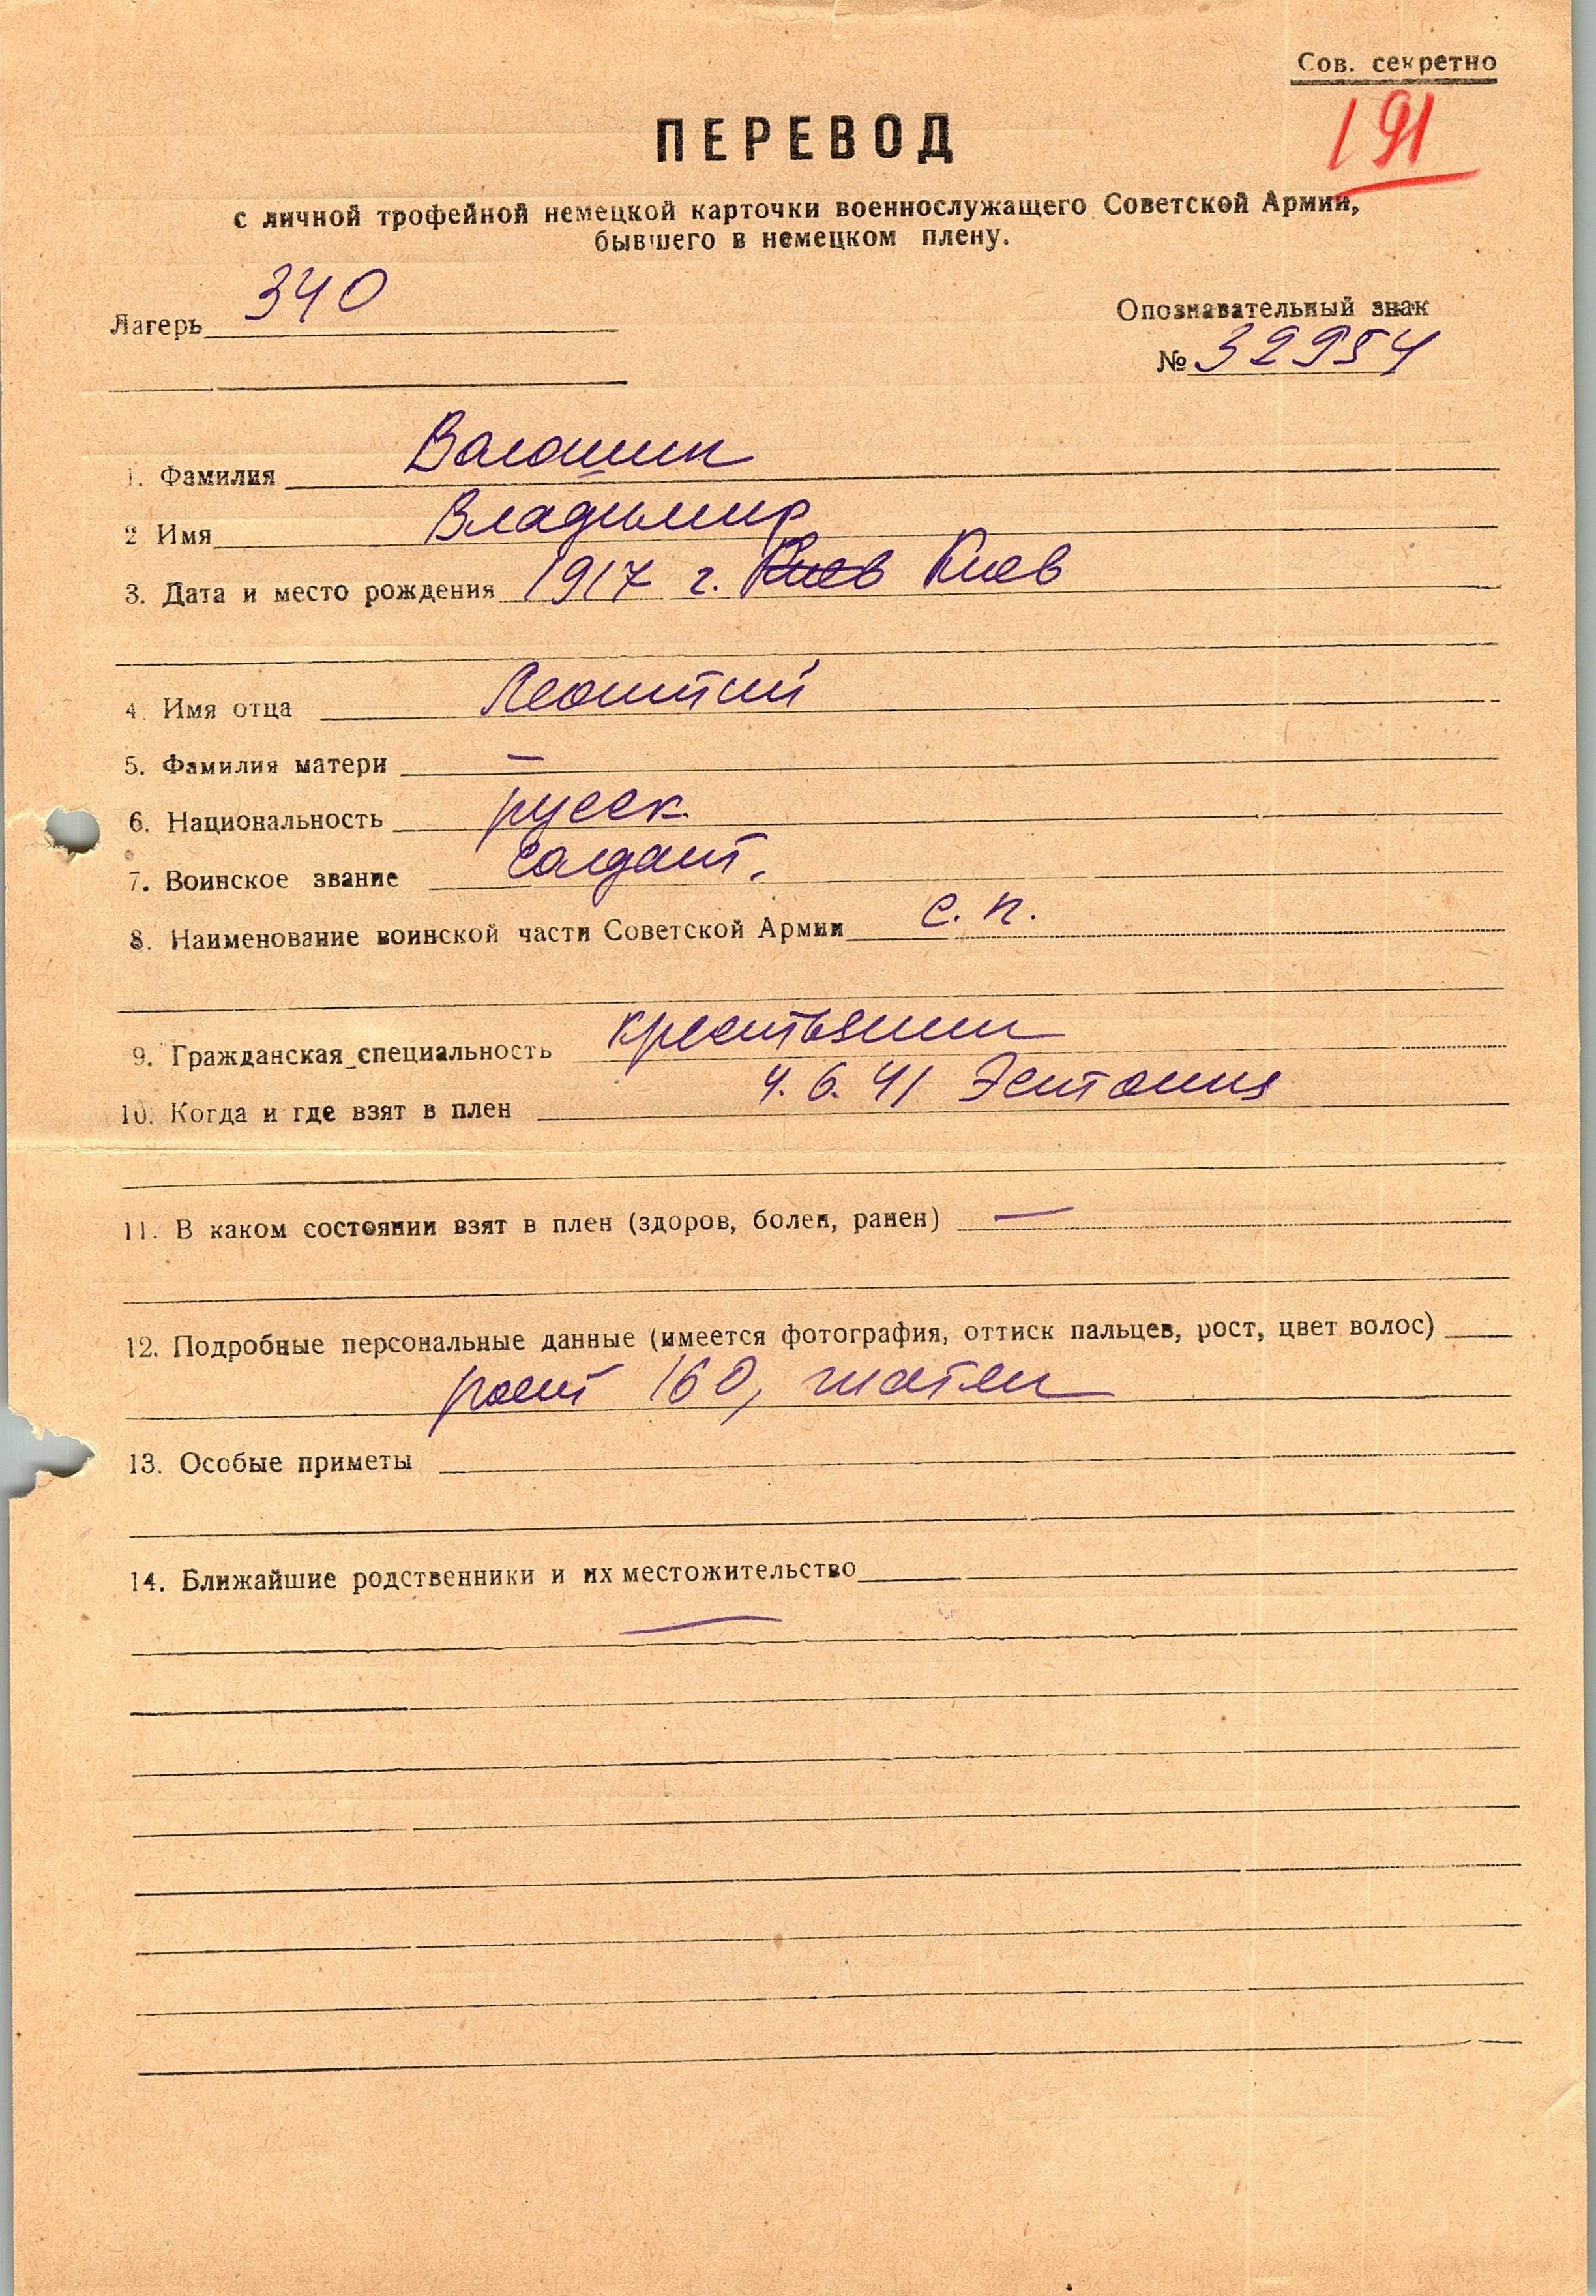 Сов. секретно
191
ПЕРЕВОД
с личной трофейной немецкой карточки военнослужащего Советской Армии,
бывшего в немецком плену.
Лагерь 340
Опознавательный знак
№ 32954
1. Фамилия Валошин
2 Имя Владимир
3. Дата и место рождения 1917 г. Киев Киев
4. Имя отца Леонтий
5. Фамилия матери —
6. Национальность русск.
7. Воинское звание солдат.
8. Наименование воинской части Советской Армии с. п.
9. Гражданская специальность крестьянин
10. Когда и где взят в плен 4. 6. 41 Эстония
11. В каком состоянии взят в плен (здоров, болен, ранен) —
12. Подробные персональные данные (имеется фотография, оттиск пальцев, рост, цвет волос)
рост 160, шатен
13. Особые приметы
14. Ближайшие родственники и их местожительство
—